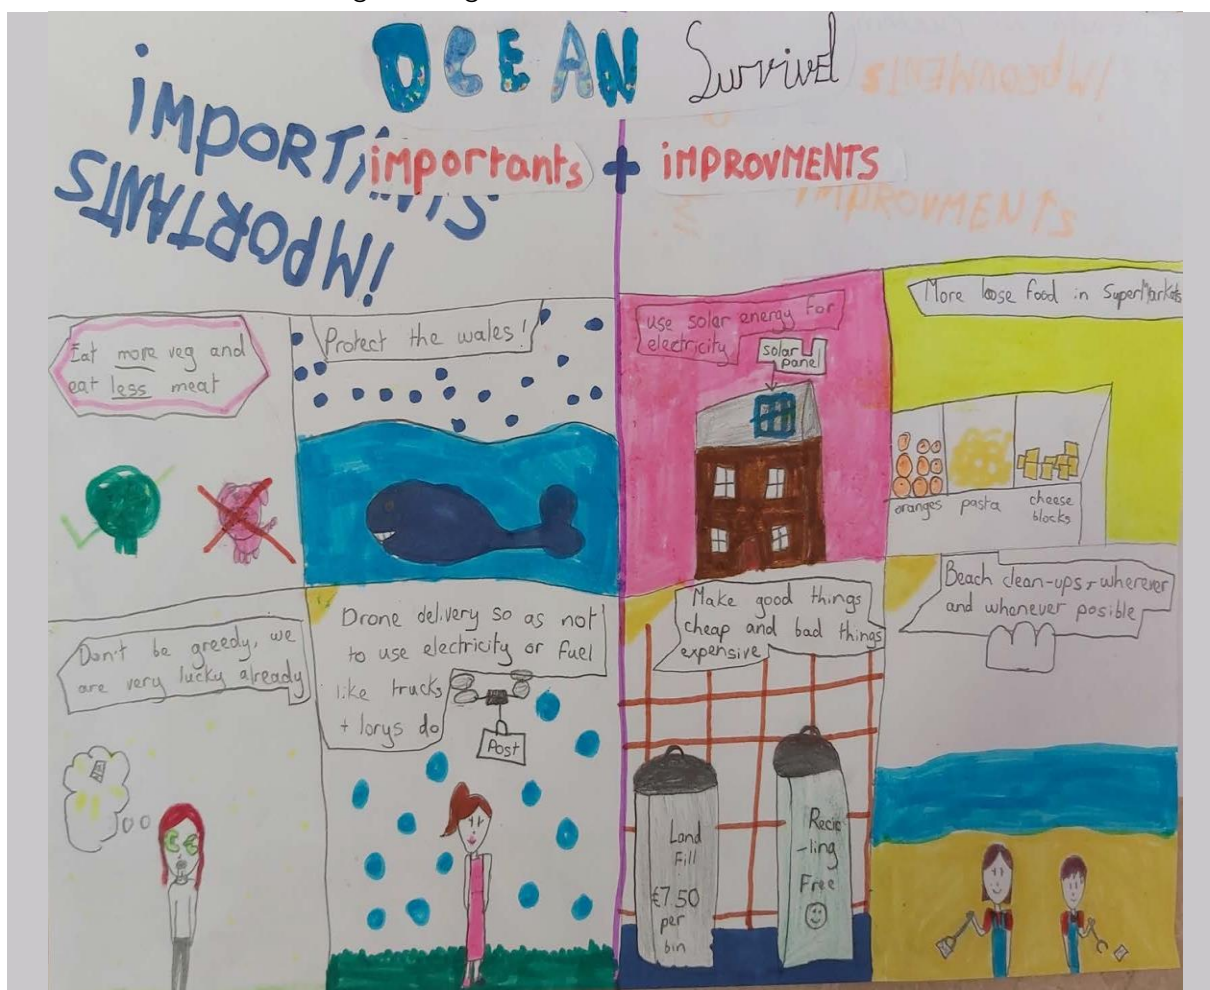 OCEAN Survivel
IMPORTANTS
importants + iMPROVMENTS
IMPORTANTS
IMPROVMENTS
IMPROVMENTS
Eat more veg and
eat less meat
Protect the wales!
use solar energy for
electricity
solar
panel
More loose food in SuperMarkets
oranges pasta cheese
blocks
Don't be greedy, we
are very lucky already
Drone delivery so as not
to use electricity or fuel
like trucks
+ lorys do
Post
Make good things
cheap and bad things
expensive
Land
Fill
€7.50
per
bin
Recic
-ling
Free
Beach clean-ups, wherever
and whenever posible